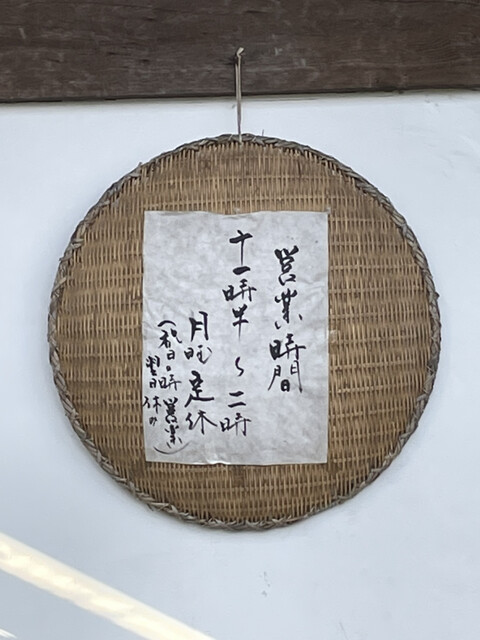 営業時間
十一時半〜二時
月曜定休
(祝日の時営業)
翌日休み